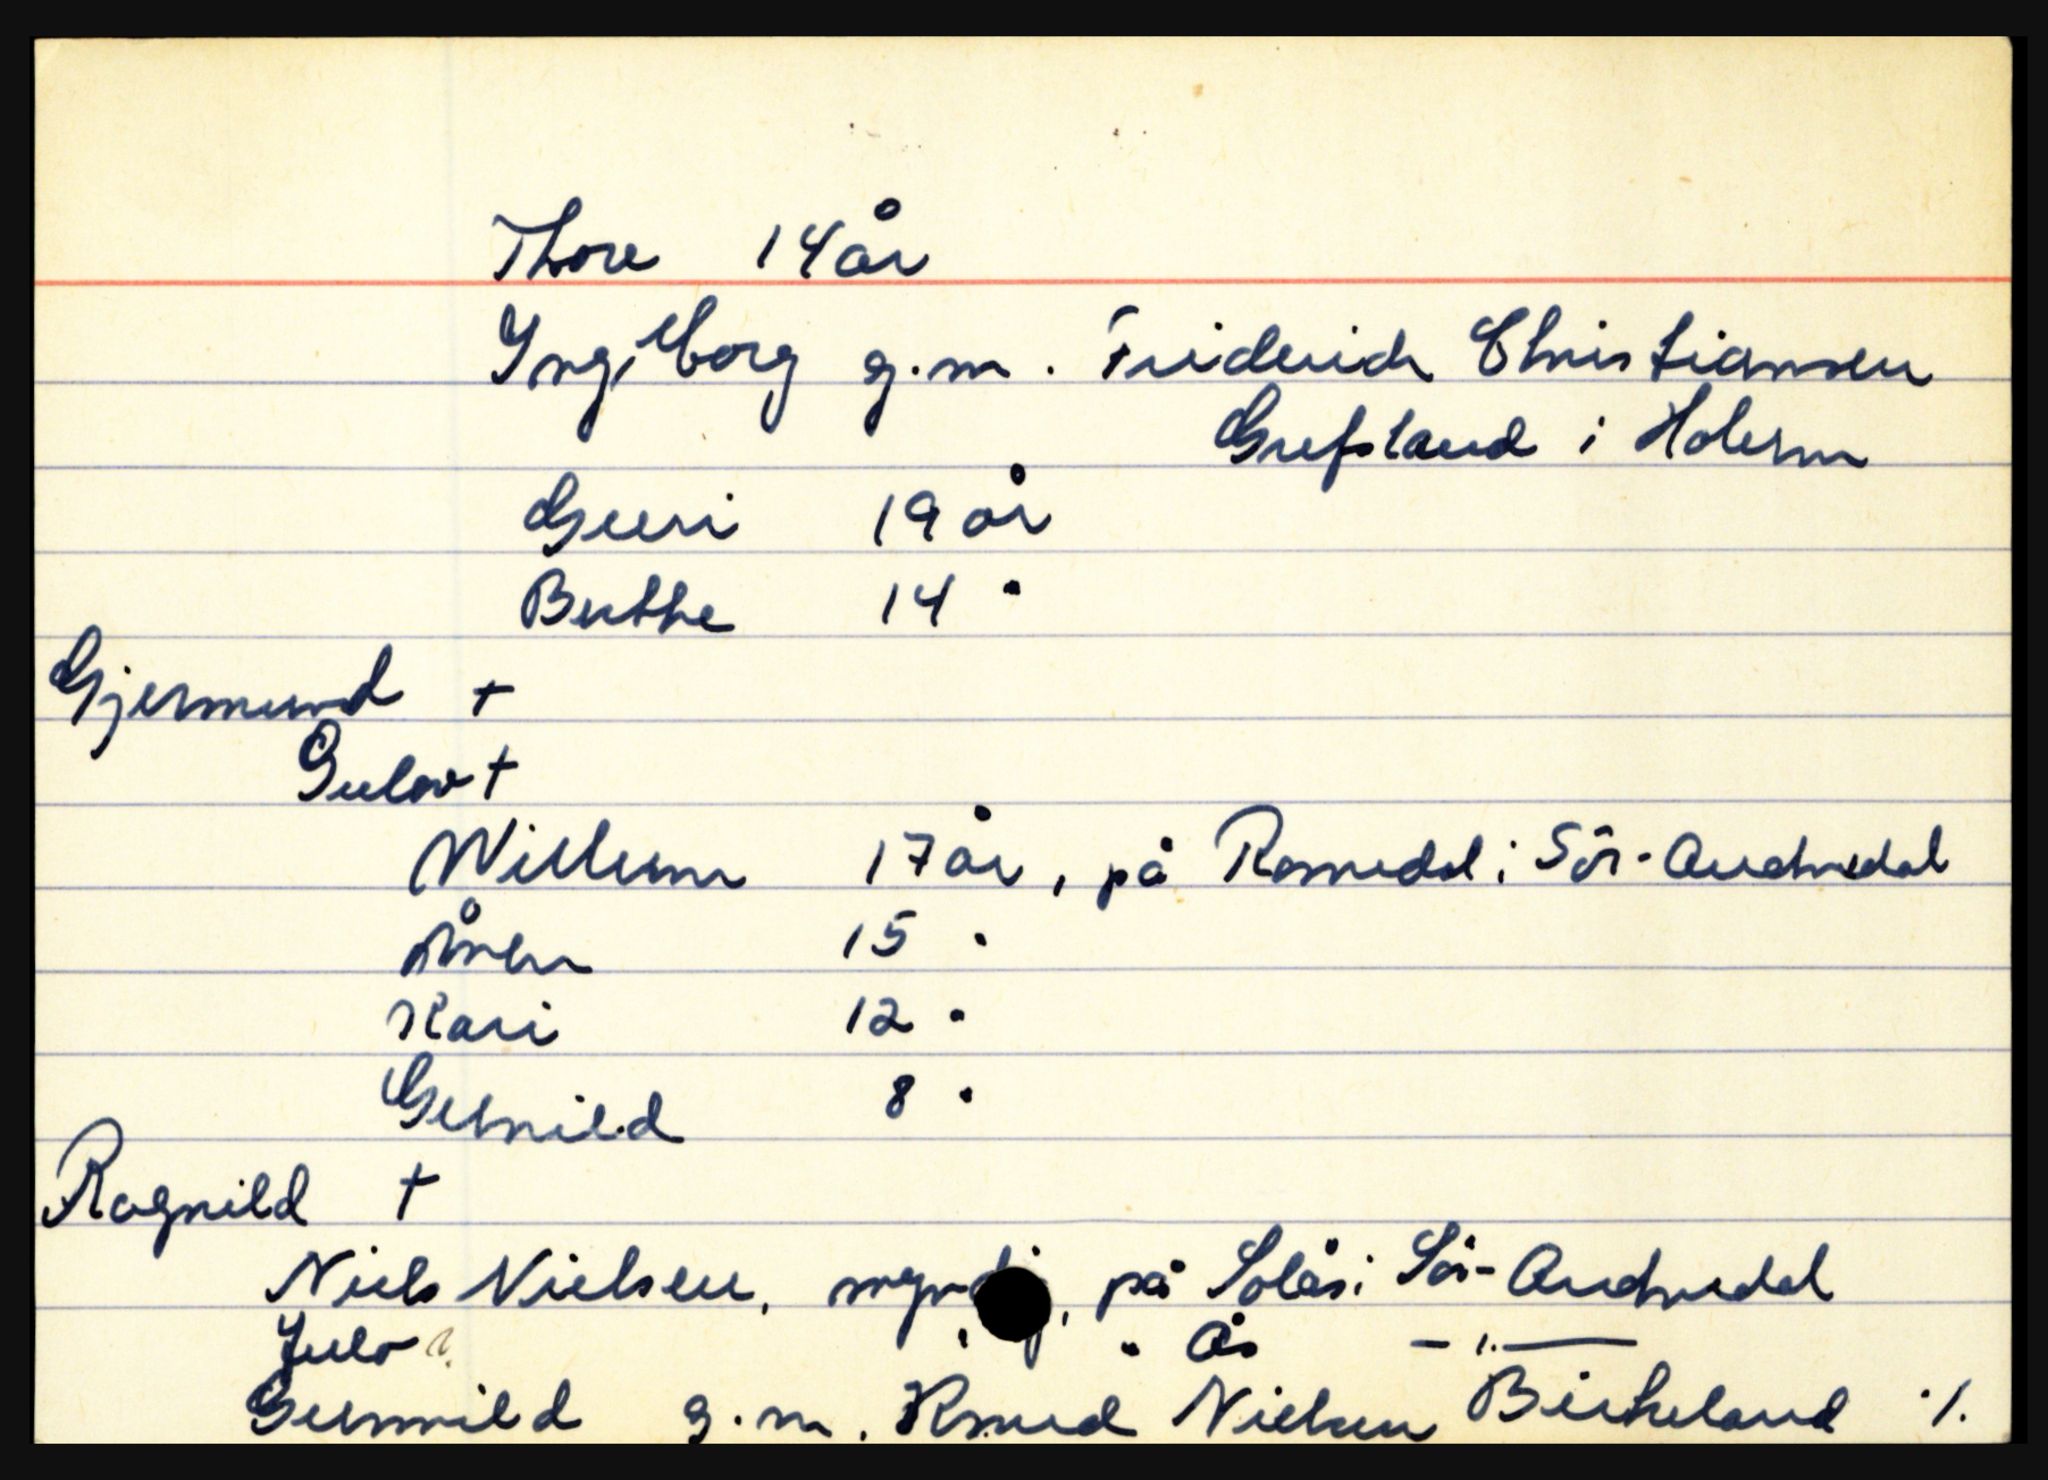 Thore 14 år
Ingeborg g.m. Friderich Christiansen
Grefstand i Holum
Guri 19 år
Berthe 14 "
Gjermund +
Gulov +
Willum 17 år, på Romedal i Sør-Audnedal
Ånen 15 "
Kari 12 "
Gunild 8 "
Ragnild +
Niels Nielsen, myndig, på Solås i Sør-Audnedal
" " Ås — " —
Gunnild g.m. Knud Nielsen Birkeland ./.